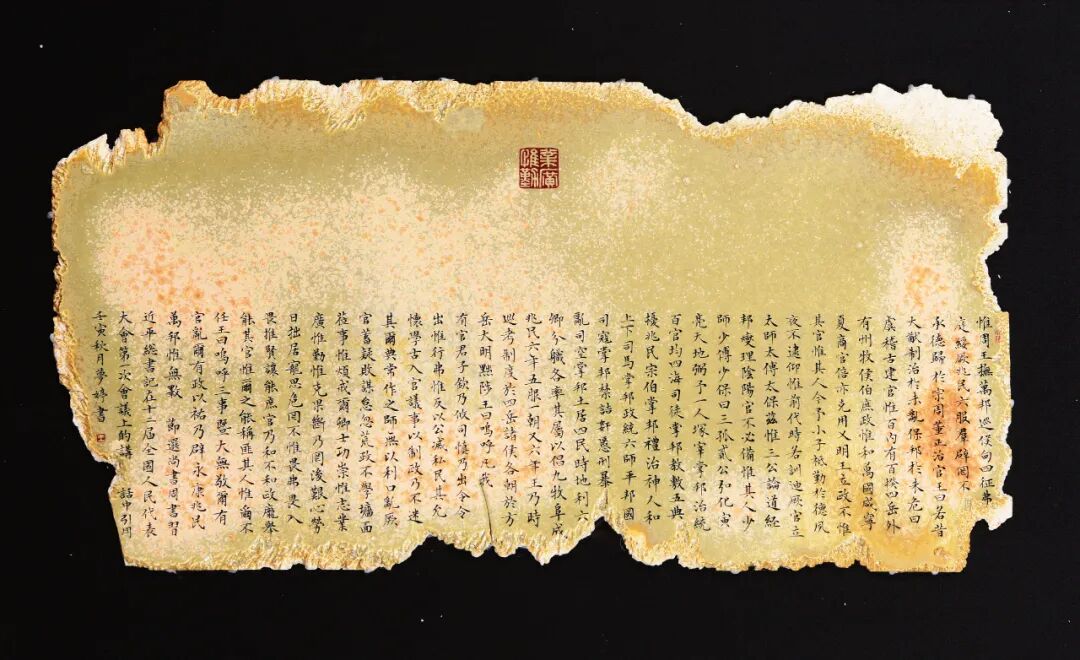 業廣
惟勤
惟周王撫萬邦巡侯甸四征弗
庭綏厥兆民六服羣辟罔不
承德歸於宗周董正治官王曰若昔
大猷制治於未亂保邦於未危曰唐
虞稽古建官惟百內有百揆四岳外
有州牧侯伯庶政惟和萬國咸寧
夏商官倍亦克用乂明王立政不惟
其官惟其人今予小子祗勤於德夙
夜不逮仰惟前代時若訓迪厥官立
太師太傅太保茲惟三公論道經
邦燮理陰陽官不必備惟其人少
師少傅少保曰三孤貳公弘化寅
亮天地弼予一人冢宰掌邦治統
百官均四海司徒掌邦教敷五典
擾兆民宗伯掌邦禮治神人和
上下司馬掌邦政統六師平邦國
司寇掌邦禁詰姦慝刑暴
亂司空掌邦土居四民時地利六
卿分職各率其屬以倡九牧阜成
兆民六年五服一朝又六年王乃時
巡考制度於四岳諸侯各朝於方
岳大明黜陟王曰嗚呼凡我
有官君子欽乃攸司慎乃出令令
出惟行弗惟反以公滅私民其允
懷學古入官議事以制政乃不迷
其爾典常作之師無以利口亂厥
官蓄疑敗謀怠忽荒政不學牆面
莅事惟煩戒爾卿士功崇惟志業
廣惟勤惟克果斷乃罔後艱心勞
日拙居寵思危罔不惟畏弗畏入
畏推賢讓能庶官乃和不和政龐舉
能其官惟爾之能稱匪其人惟爾不
任王曰嗚呼三事暨大無敬爾有
官亂爾有政以祐乃辟永康兆民
萬邦惟無斁 節選尚書周書習
近平總書記在十二屆全國人民代表
大會第一次會議上的講話中引用
壬寅秋月夢婷書